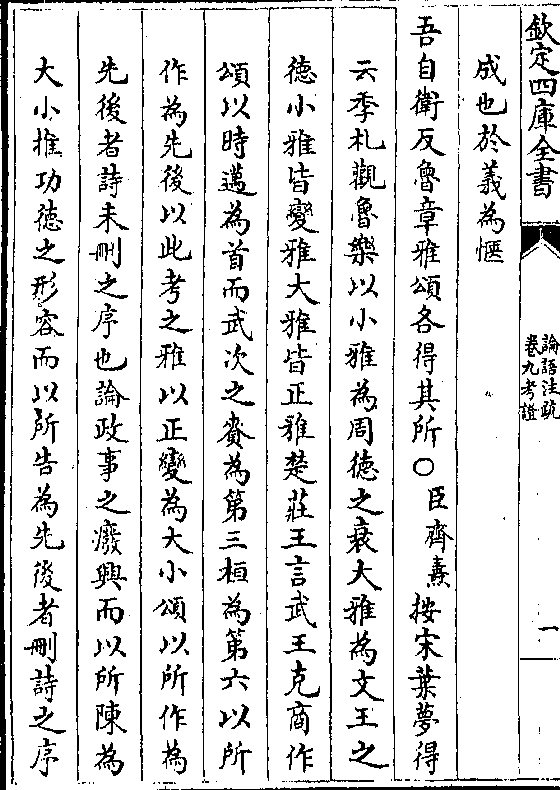 欽定四庫全書
論語注疏
卷九考證
一
成也於義為愜
吾自衛反魯章雅頌各得其所○臣齊燾按宋葉夢得
云季札觀魯樂以小雅為周德之衰大雅為文王之
德小雅皆變雅大雅皆正雅楚莊王言武王克商作
頌以時邁為首而武次之賚為第三桓為第六以所
作為先後以此考之雅以正變為大小頌以所作為
先後者詩未刪之序也論政事之癈興而以所陳為
大小推功德之形容而以所告為先後者刪詩之序